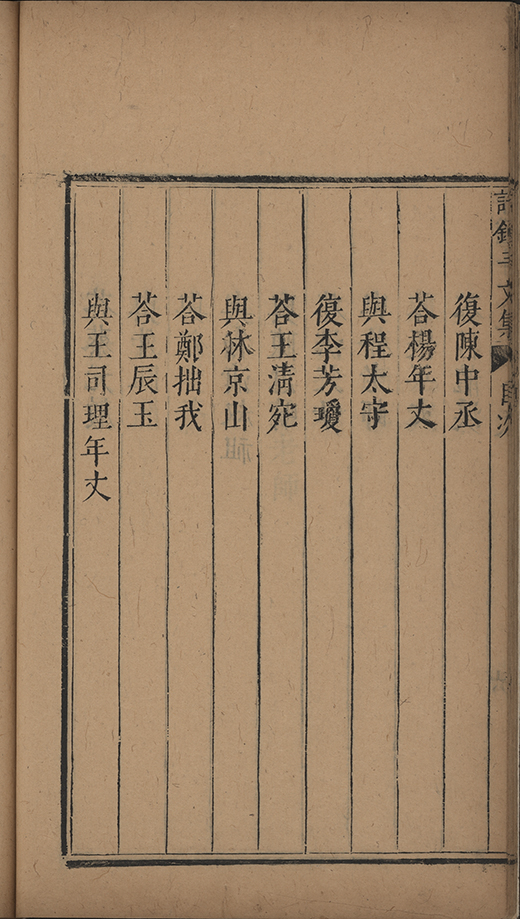 許鍾斗文集 目次
復陳中丞
荅楊年丈
與程太守
復李芳瓊
荅王淸宛
與林京山
荅鄭拙我
荅王辰玉
與王司理年丈